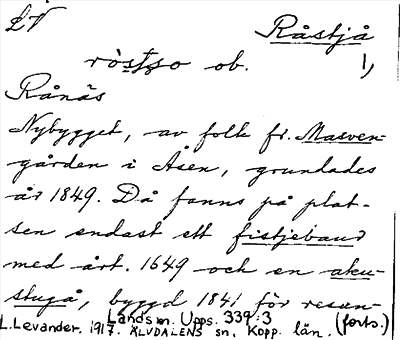 LV
Råstjå
1,
röstso ob.
Rånäs
Nybygget, av folk fr. Masven-
gården i Åsen, grundades
år 1849. Då fanns på plat-
sen endast ett fistjebaud
med årt. 1649 och en aku-
stugå, byggd 1841 för resan-
Landsm. Upps. 339:3 (forts.)
L.Levander. 1917. ÄLVDALENS sn, Kopp. län.